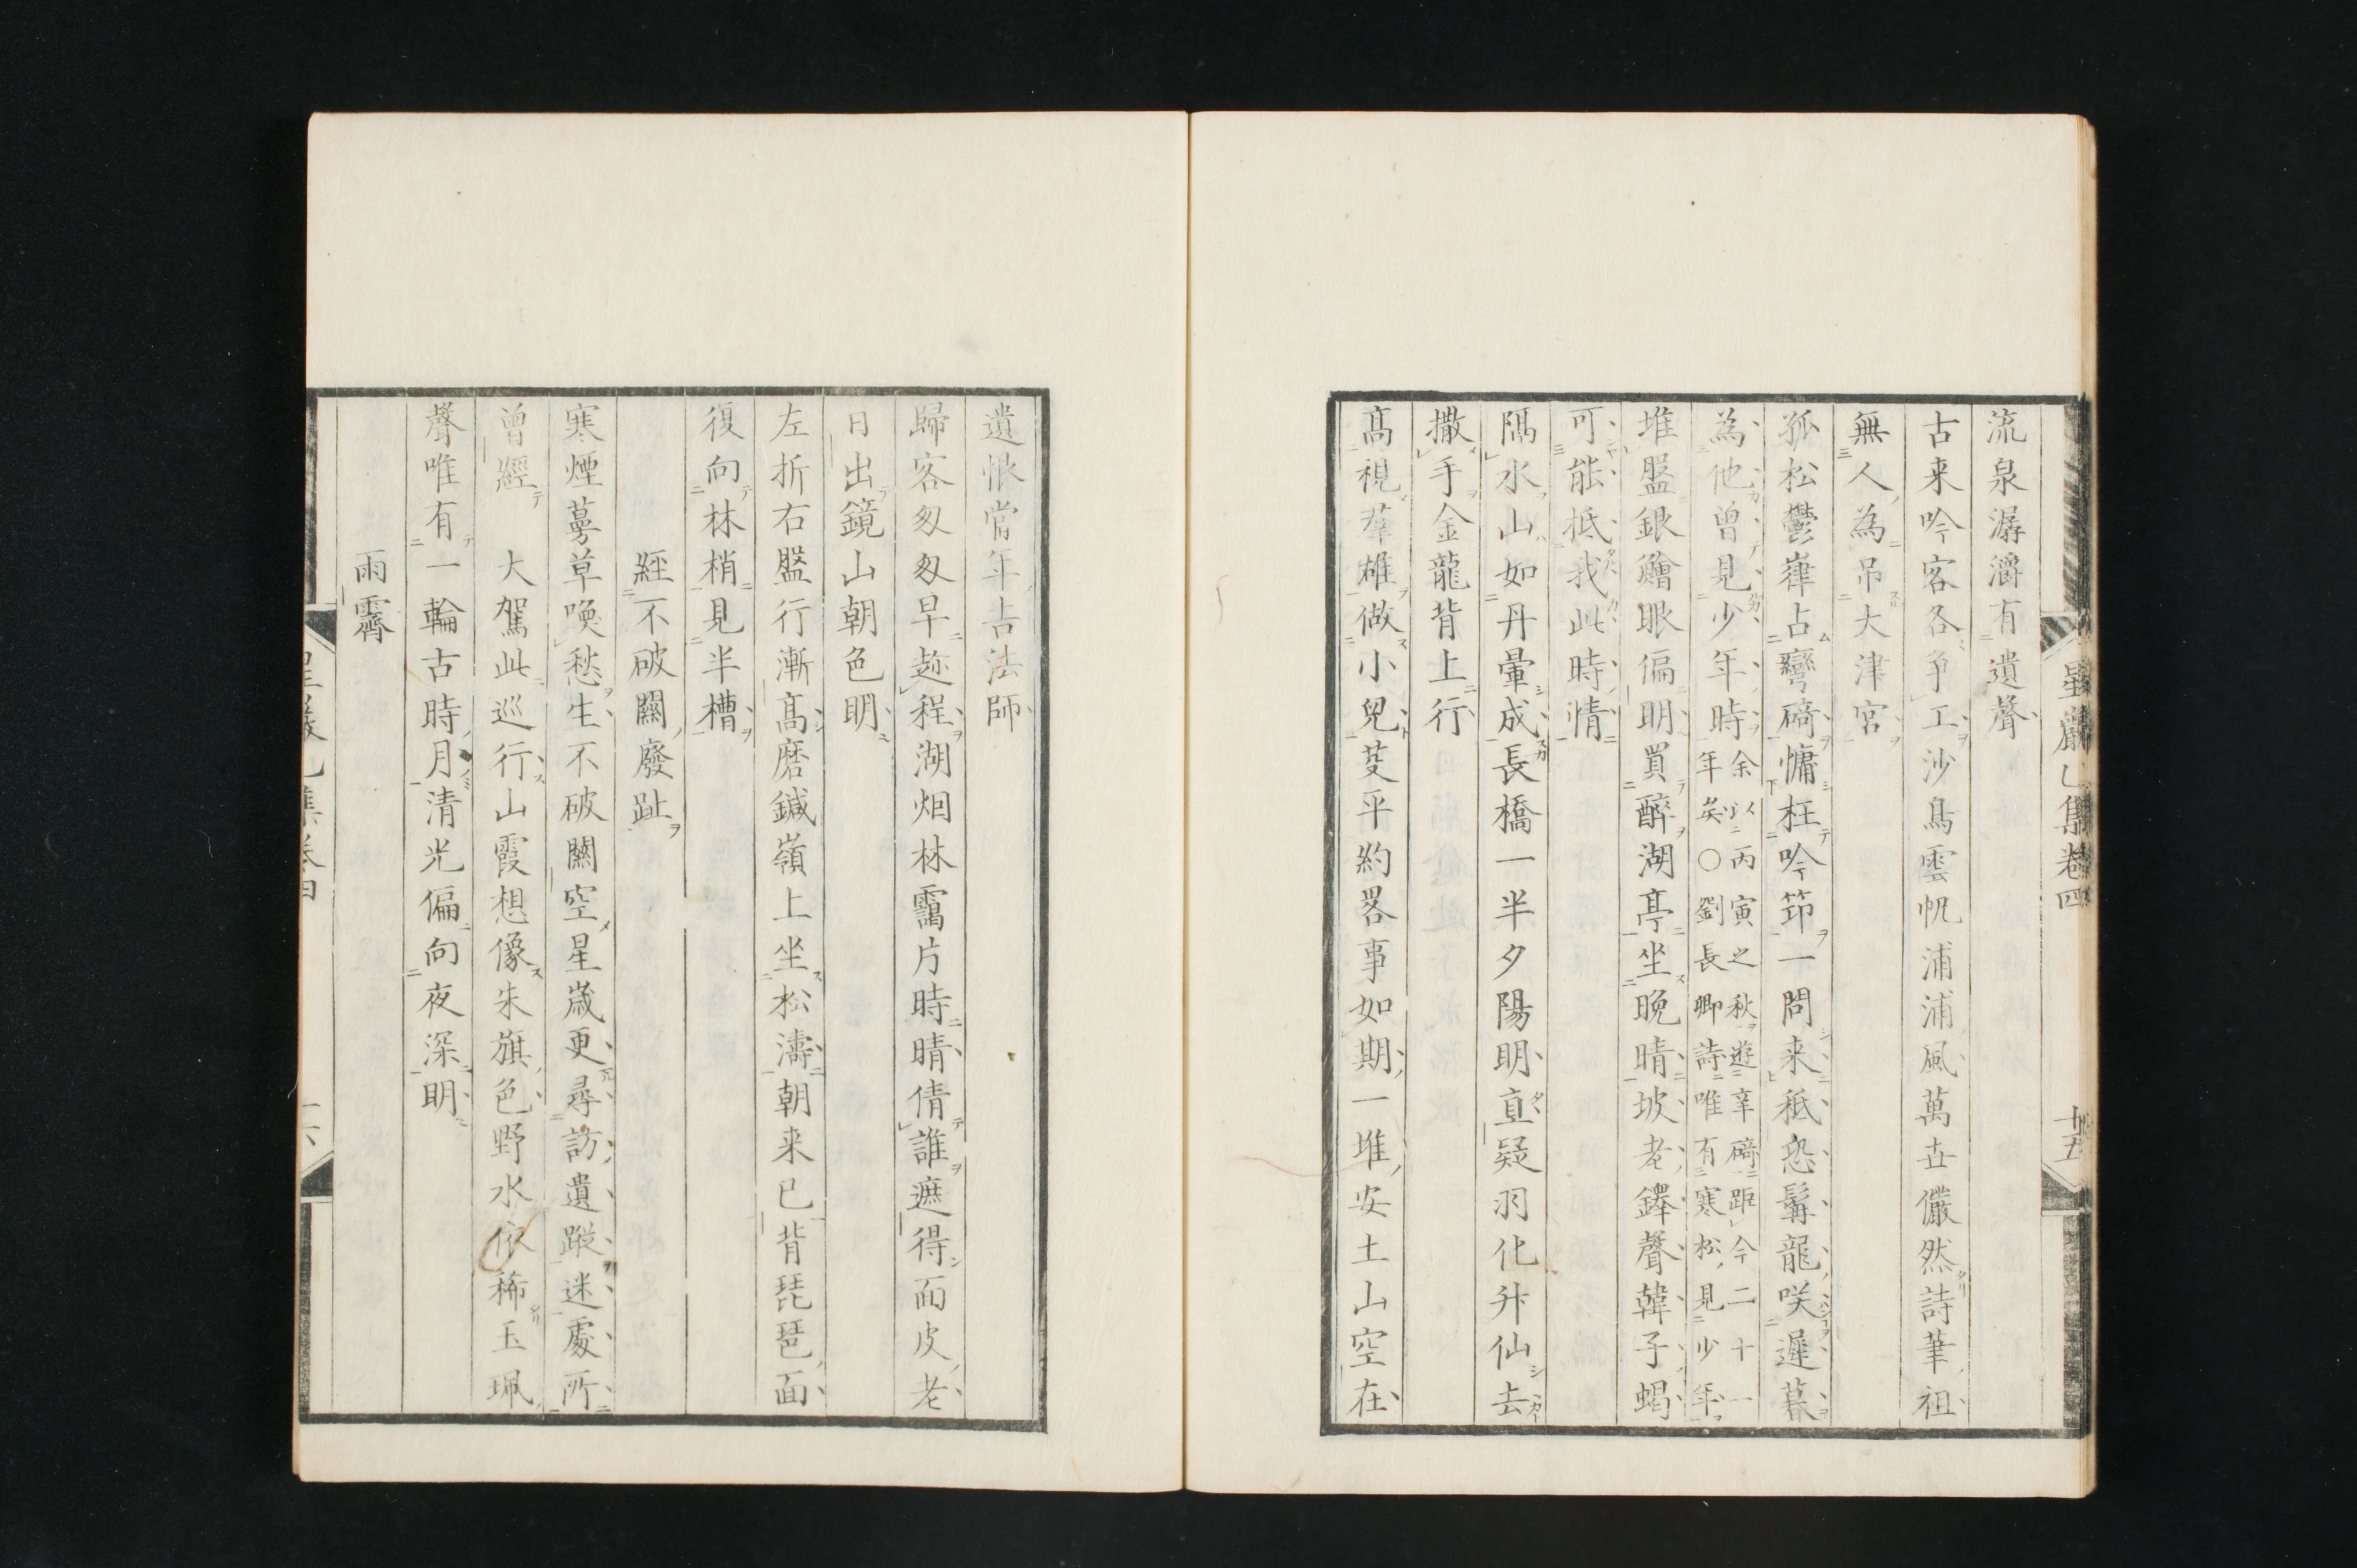 星巖乙集卷四
十五
流泉潺潺有遺聲
古来吟客各争工沙鳥雲帆浦浦風萬古儼然詩筆祖
無人為吊大津宮
孤松鬱嵂占彎碕慵枉吟笻一問来秖恐髯龍咲遲暮
為他曾見少年時余以丙寅之秋遊辛碕距今二十一
年矣〇劉長卿詩唯有寒松見少年
堆盤銀鱠眼偏明買醉湖亭坐晩晴坡老鐸聲韓子蝎
可能抵我此時情
隅水山如丹暈成長橋一半夕陽明直疑羽化升仙去
撒手金龍背上行
髙視羣雄做小兒芟平約畧事如期一堆安土山空在
遺恨當年占法師
歸客匆匆早趂程湖烟林靄片時晴倩誰遮得面皮老
日出鏡山朝色明
左折右盤行漸髙磨鍼嶺上坐松濤朝来已背琵琶面
復向林梢見半槽
經不破關廢趾
寒煙蔓草喚愁生不破關空星歳更尋訪遺蹤迷處所
曾經　大駕此巡行山霞想像朱旗色野水依稀玉珮
聲唯有一輪古時月清光偏向夜深明
雨霽
星巖乙集卷四
十六